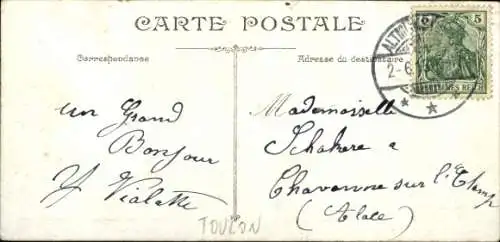 CARTE POSTALE
Correspondance
Adresse du destinataire
5 5
DEUTSCHES REICH
2-6
un Grand
Bonjour
Y Vialatte
Mademoiselle
a
Chavanne sur l'Etang
(Alsace)
TOULON